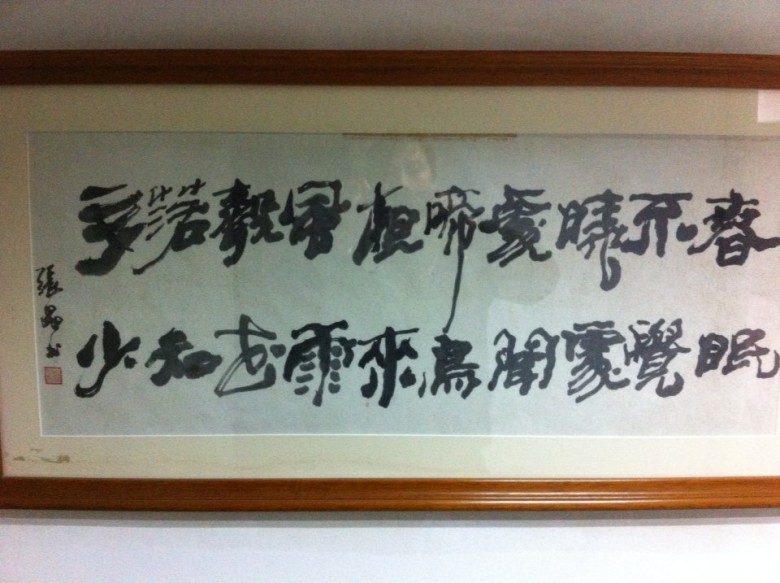 春眠
不覺
曉處
處聞
啼鳥
夜來
風雨
聲花
落知
多少
張 书